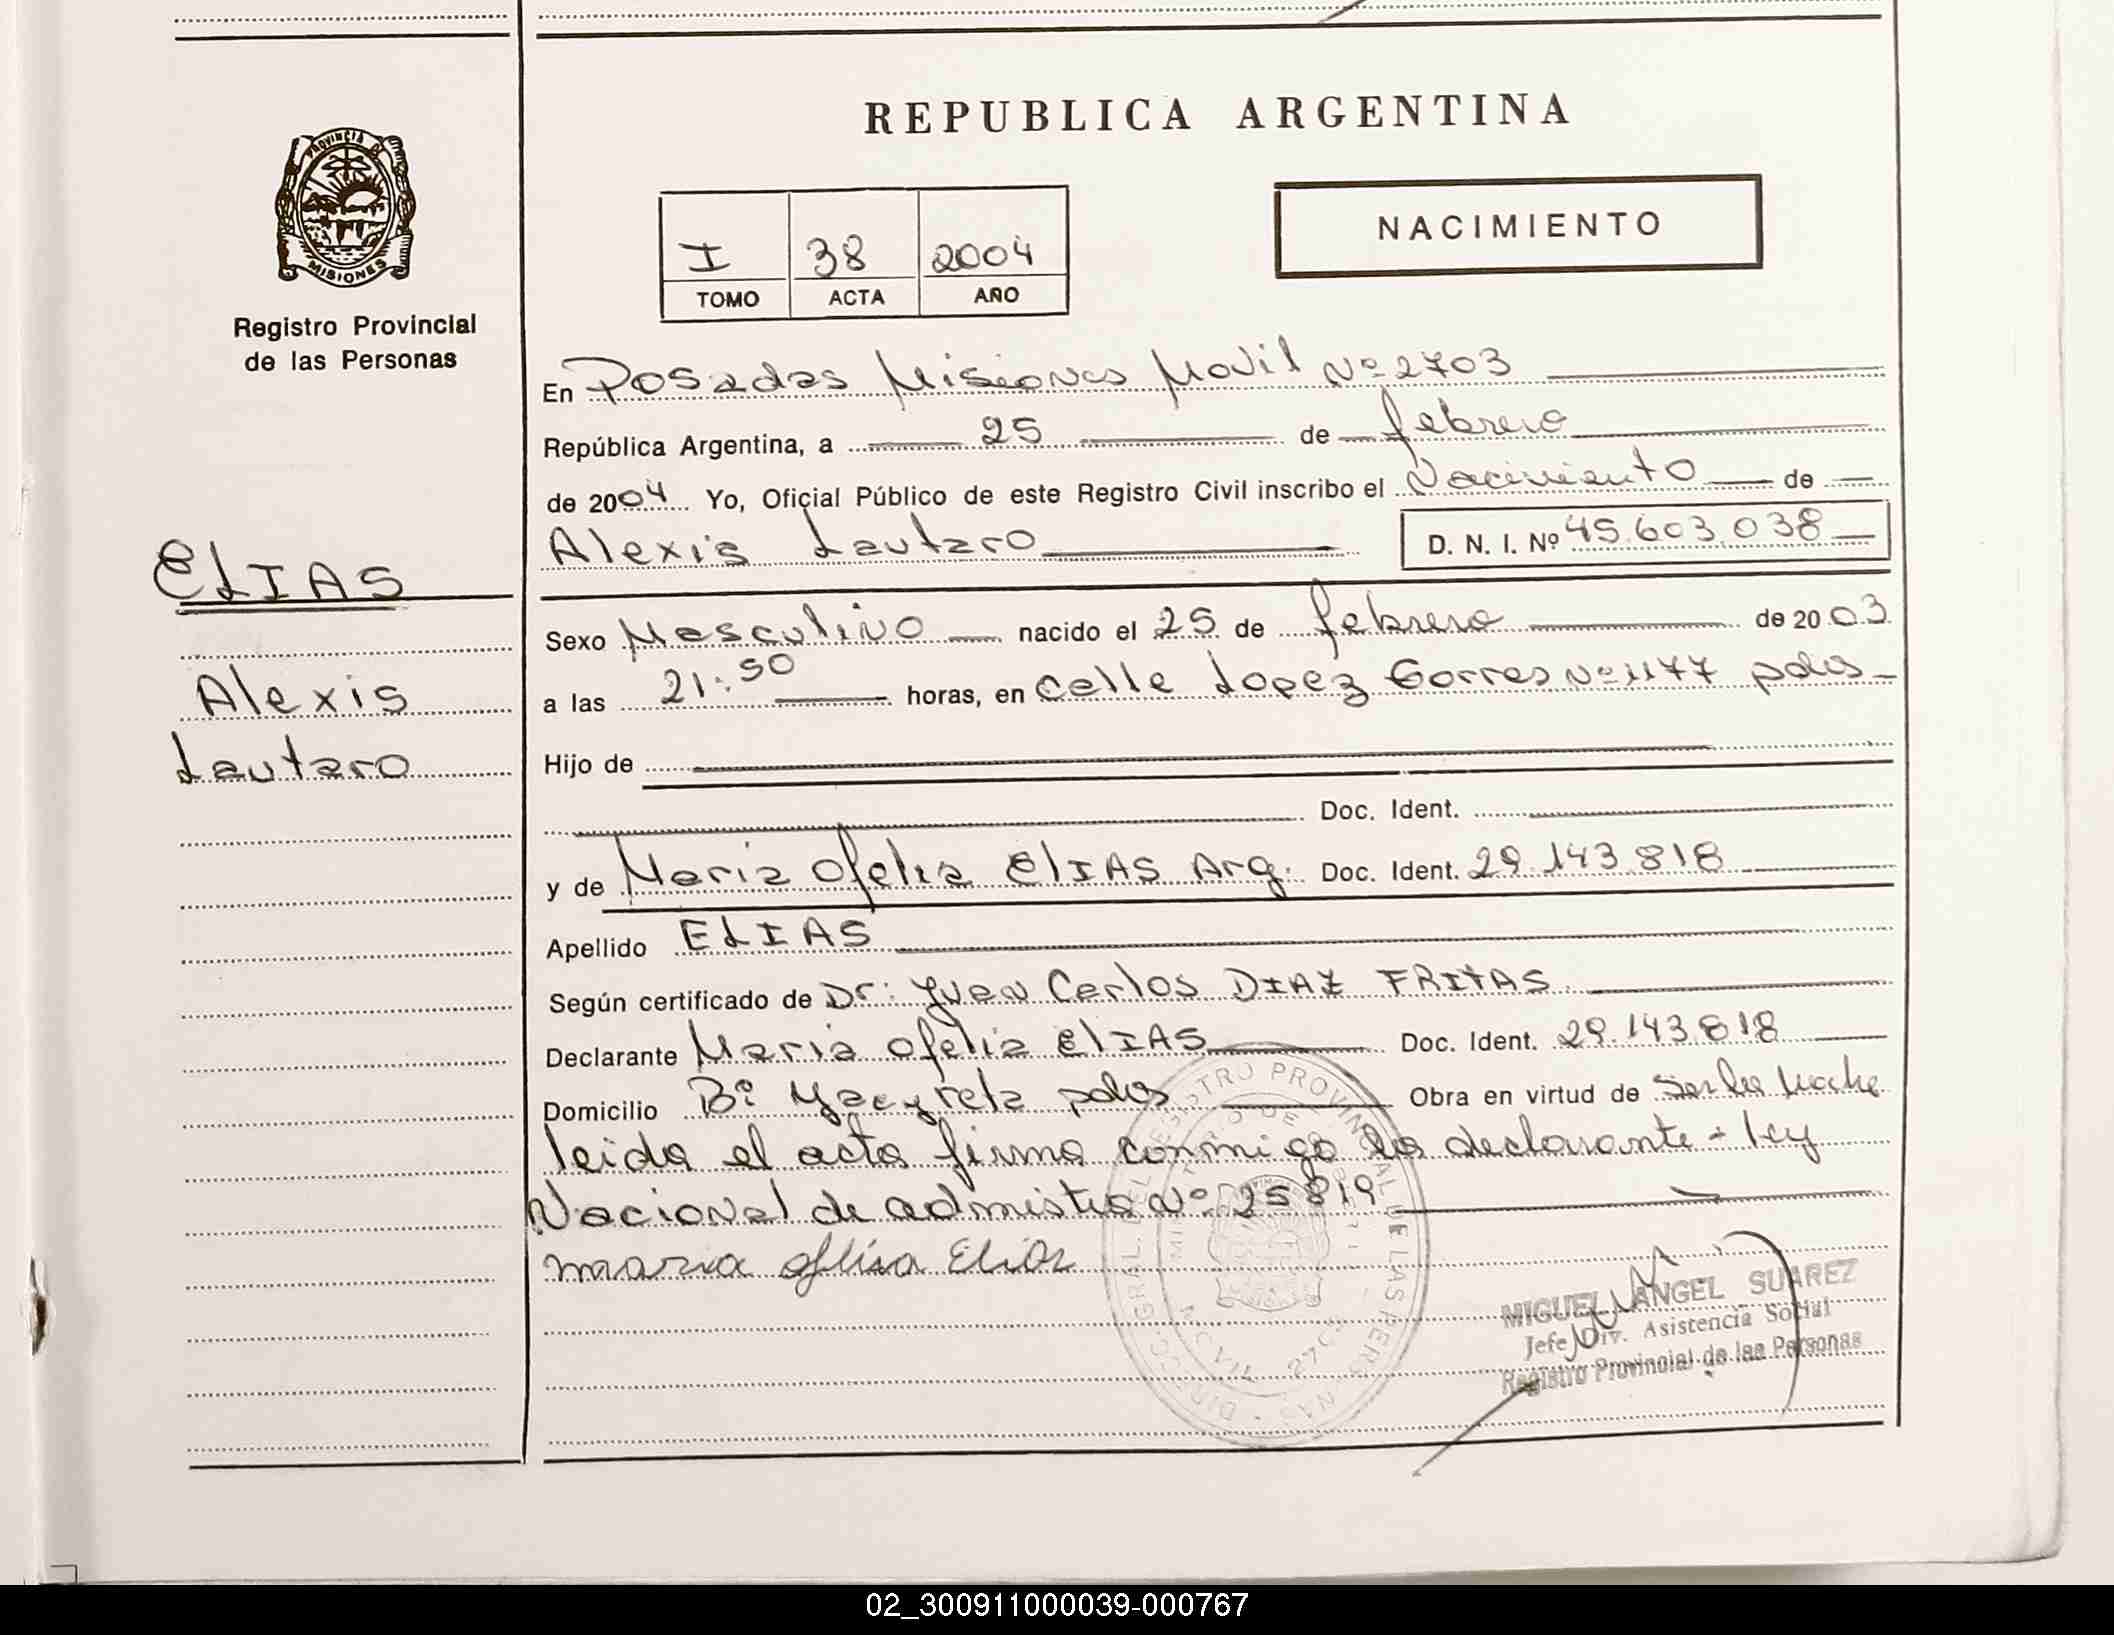 REPUBLICA ARGENTINA
PROVINCIA DE
MISIONES
Registro Provincial
de las Personas
I 38 2004
TOMO ACTA AÑO
NACIMIENTO
En Posadas Misiones Movil Nº 2703
República Argentina, a 25 de febrero
de 2004 Yo, Oficial Público de este Registro Civil inscribo el Nacimiento de
Alexis Lautaro D. N. I. Nº 45.603.038
ELIAS
Alexis
Lautaro
Sexo Masculino nacido el 25 de febrero de 2003
a las 21:50 horas, en calle Lopez Torres Nº 1177 pdas
Hijo de
Doc. Ident.
y de Maria Ofelia ElIAS Arg. Doc. Ident. 29.143.818
Apellido ELIAS
Según certificado de Dr: Juan Carlos DIAZ FRITAS
Declarante Maria Ofelia ElIAS Doc. Ident. 29.143.818
Domicilio Bº Yacyreta pdas Obra en virtud de Ser la Madre
leida el acta firma conmigo la declarante - ley
Nacional de admistia Nº 25819
maria Elias
MIGUEL ANGEL SUAREZ
Jefe Div. Asistencia Social
Registro Provincial de las Personas
02_300911000039-000767